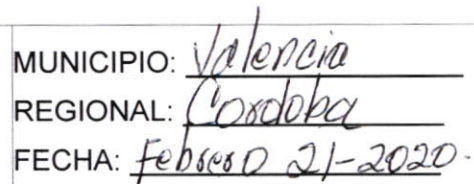 MUNICIPIO: Valencia
REGIONAL: Cordoba
FECHA: Febrero 21-2020.